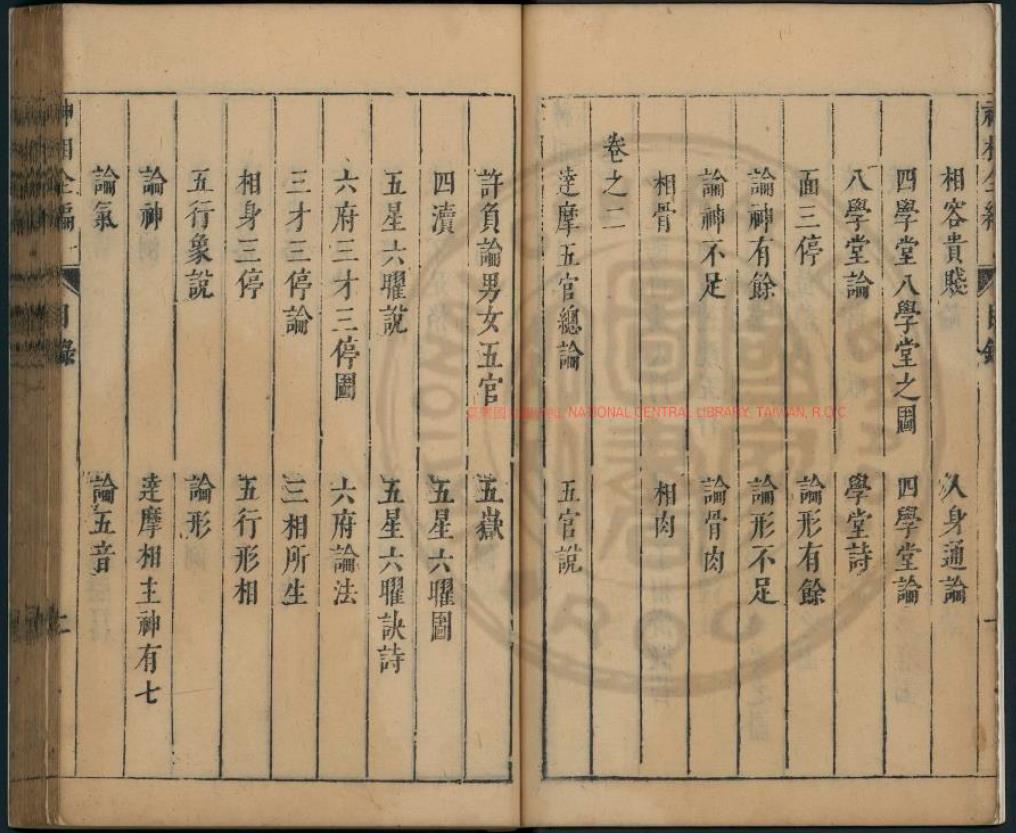 相容貴賤　人身通論
四學堂八學堂之圖　四學堂論
八學堂論　學堂詩
面三停　論形有餘
論神有餘　論形不足
論神不足　論骨肉
相骨　相肉
卷之二
達摩五官總論　五官說
許負論男女五官　五嶽
四瀆　五星六曜圖
五星六曜說　五星六曜訣詩
六府三才三停圖　六府論法
三才三停論　三相所生
相身三停　五行形相
五行象說　論形
論神　達摩相主神有七
論氣　論五音
神相全編　目錄
NATIONAL CENTRAL LIBRARY, TAIWAN, R.O.C